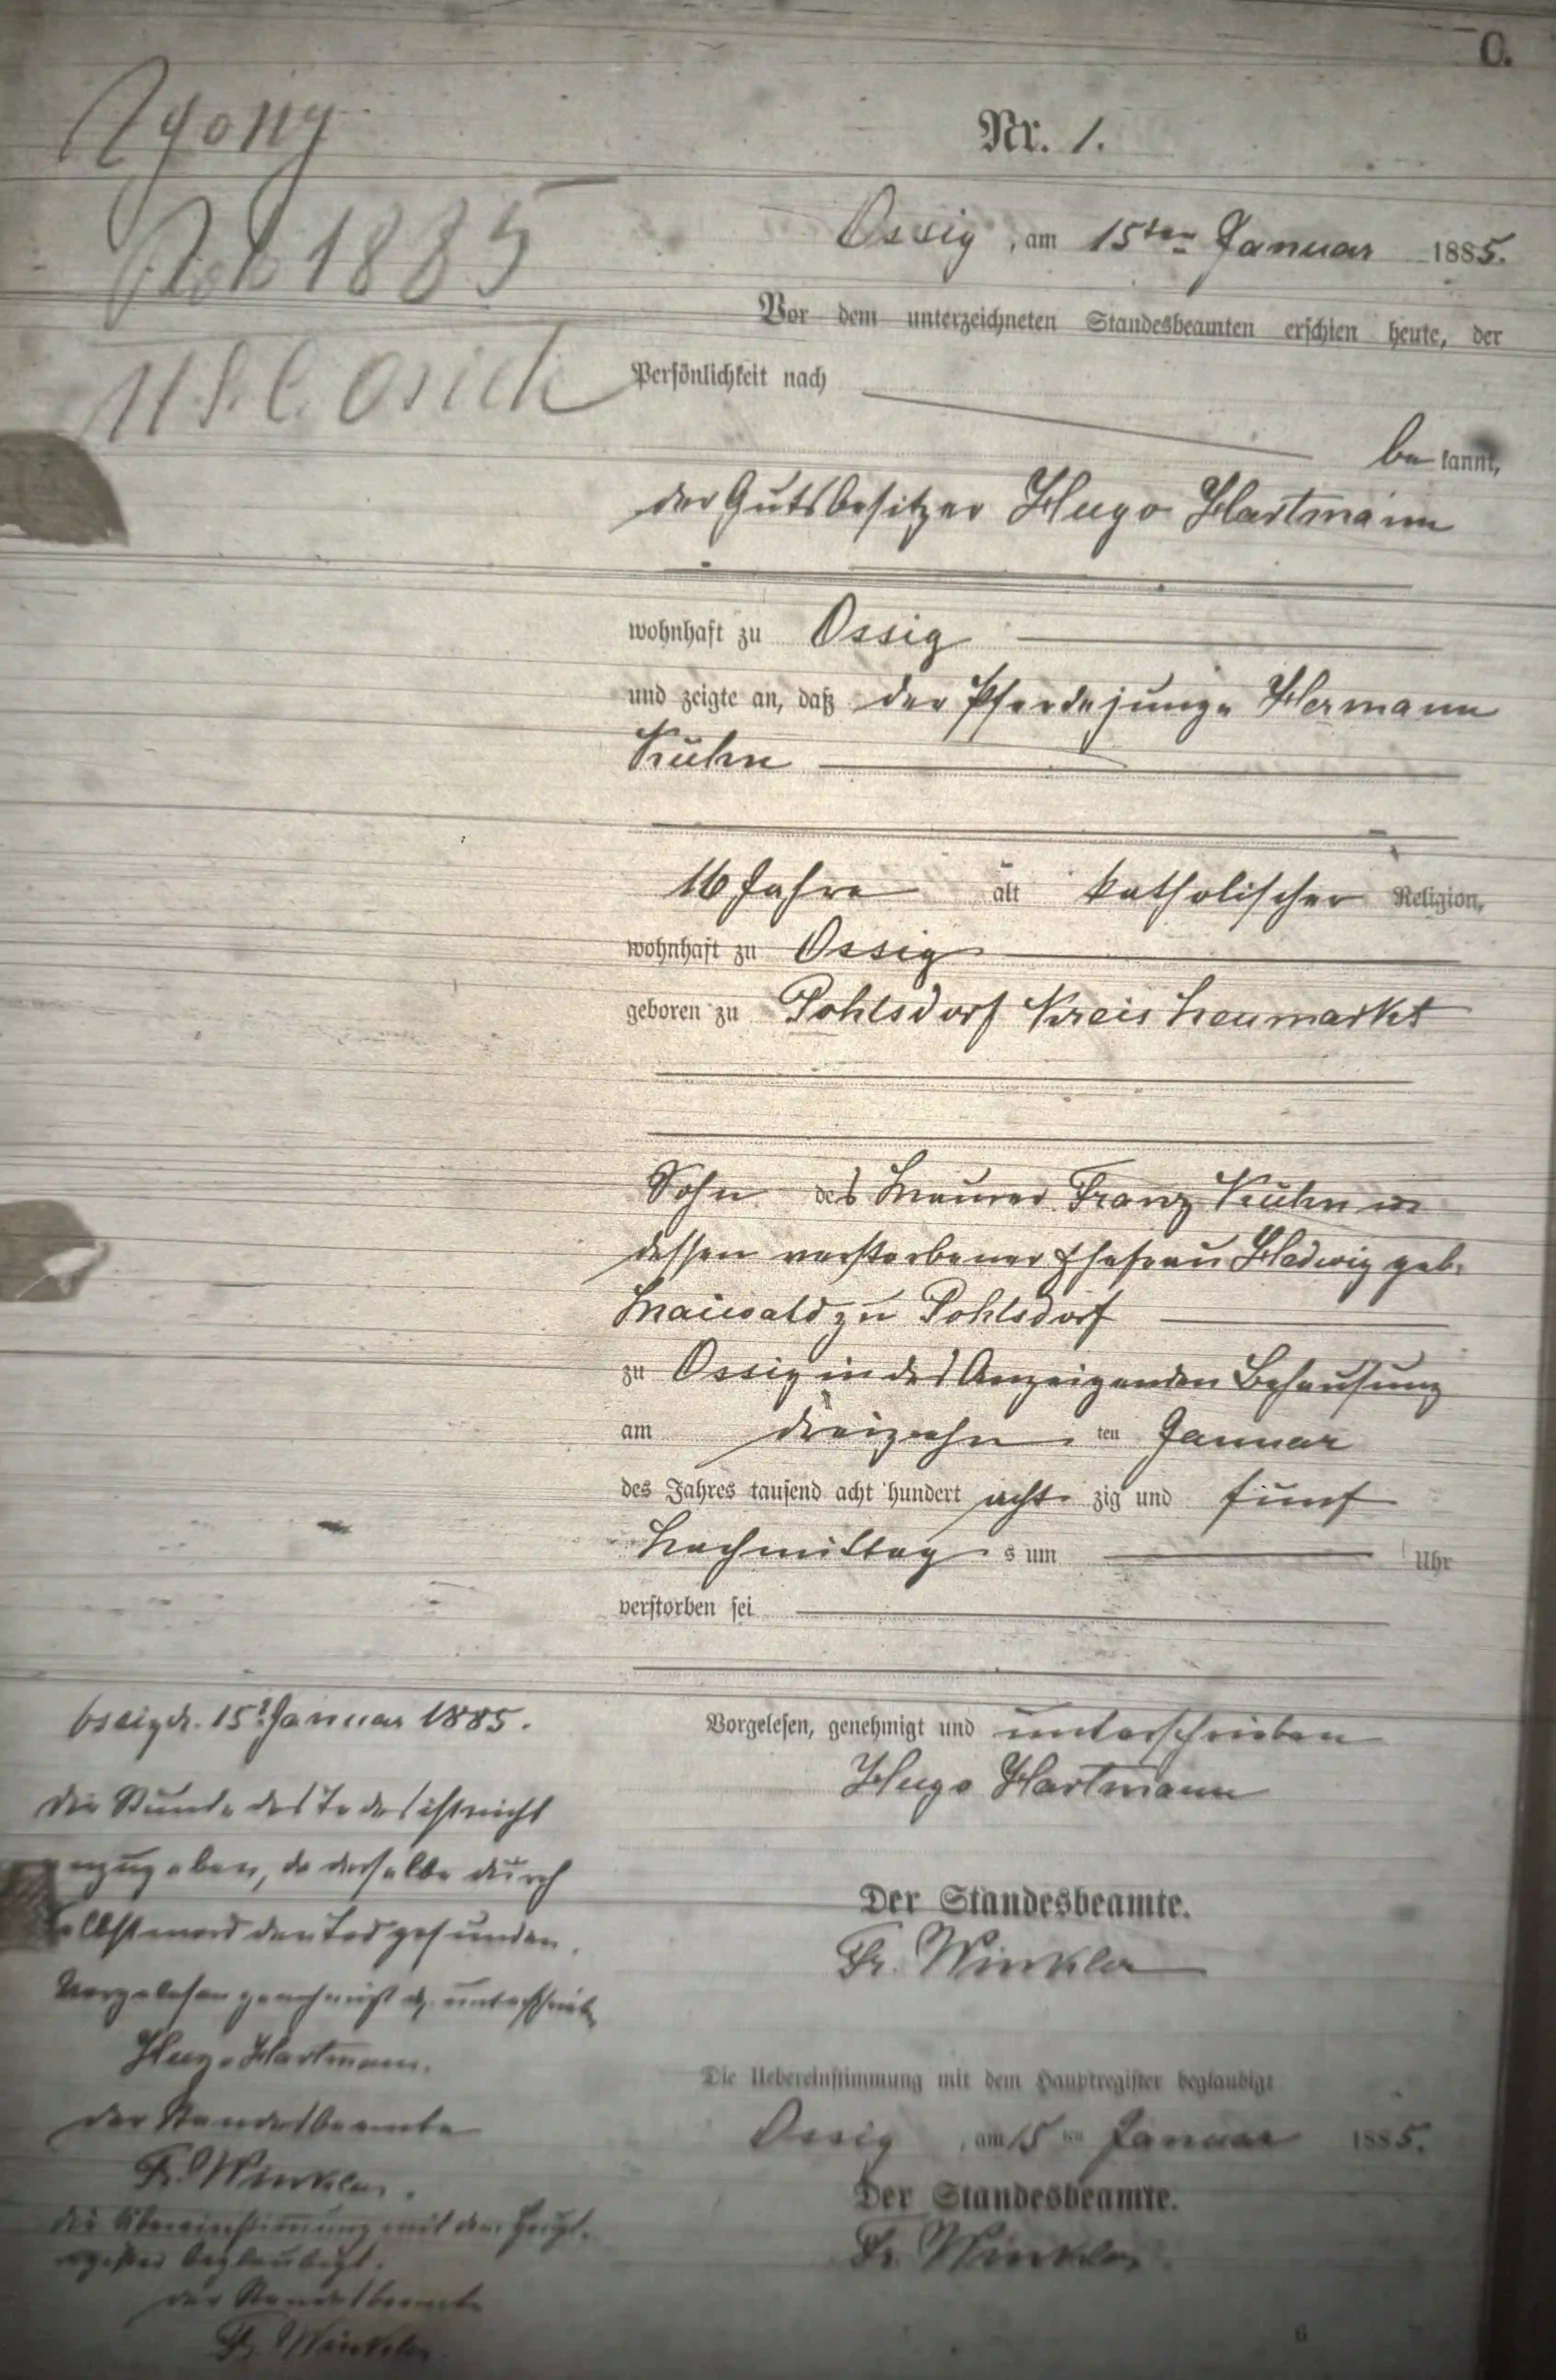 C.
Zgony
Rok 1885
USC Osiek
Nr. 1.
Ossig, am 15ten Januar 1885.
Vor dem unterzeichneten Standesbeamten erschien heute, der
Persönlichkeit nach
bekannt,
der Gutsbesitzer Hugo Hartmann
wohnhaft zu Ossig
und zeigte an, daß der Pferdejunge Hermann
Kühn
16 Jahre alt katholischer Religion,
wohnhaft zu Ossig
geboren zu Pohlsdorf Kreis Neumarkt
Sohn des Maurer Franz Kühn u
dessen verstorbener Ehefrau Hedwig geb.
Maiwald zu Pohlsdorf
zu Ossig in des Anzeigenden Behausung
am dreizehn ten Januar
des Jahres tausend acht hundert acht zig und fünf
Nachmittag s um Uhr
verstorben sei
Vorgelesen, genehmigt und unterschrieben
Hugo Hartmann
Der Standesbeamte.
Fr. Winkler
Die Uebereinstimmung mit dem Hauptregister beglaubigt
Ossig, am 15 ten Januar 1885.
Der Standesbeamte.
Fr. Winkler
Ossig d. 15t Januar 1885.
Die Stunde des Todes ist nicht
anzugeben, da derselbe durch
Selbstmord den Tod gefunden.
Vorgelesen genehmigt u. unterschrieb
Hugo Hartmann.
Der Standesbeamte
Fr. Winkler.
Die Übereinstimmung mit dem Haupt-
register beglaubigt.
Der Standesbeamte
Fr. Winkler
6